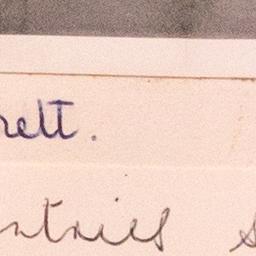 rett.
ntries s